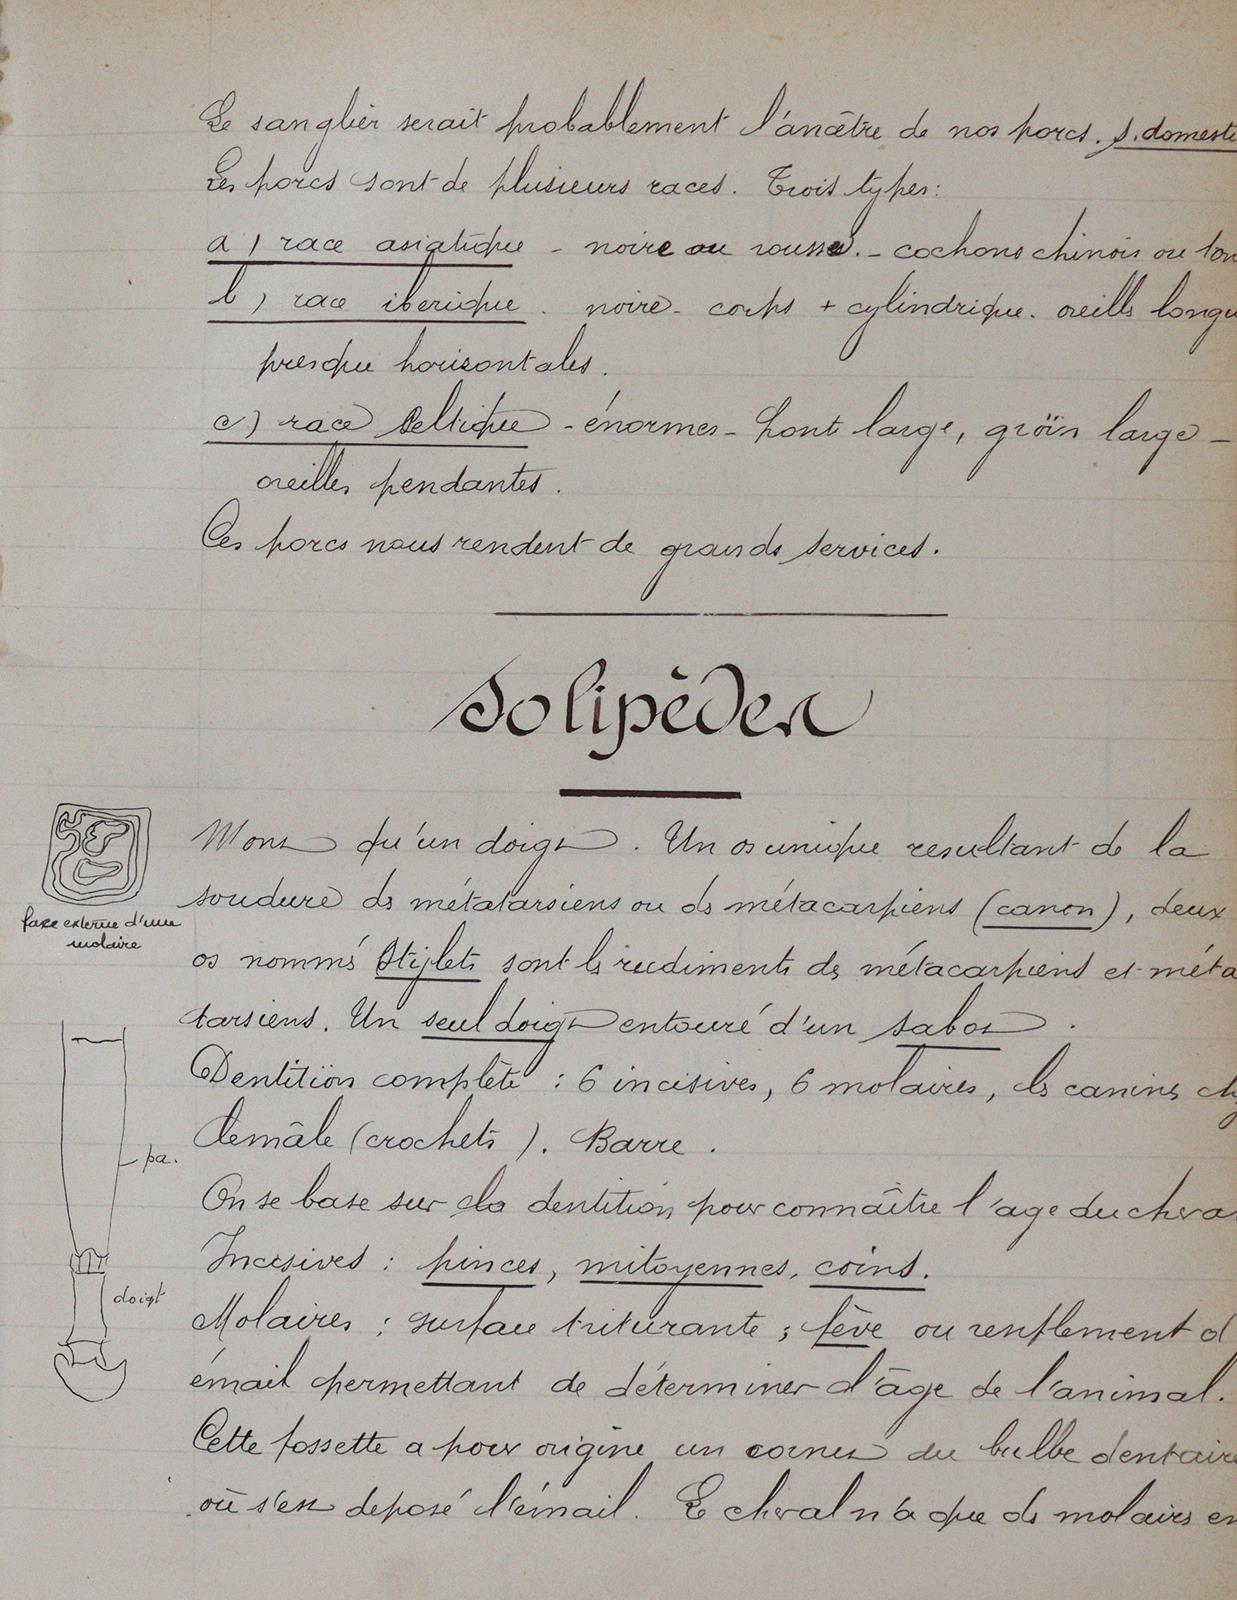 Le sanglier serait probablement l'ancêtre de nos porcs. s. domesti
Les porcs sont de plusieurs races. Trois types:
a) race asiatique - noire ou rousse. - cochons chinois ou ton
b) race iberique. noire - corps + cylindrique. oreills longu
presque horisontales.
c) race Seltique - énormes - front large, groïn large -
oreilles pendantes.
Ces porcs nous rendent de grands services.
Solipèdes
N'ont qu'un doigt. Un os unique resultant de la
soudure ds métatarsiens ou ds métacarpiens (canon), deux
face externe d'une
molaire
os nommés Stijlets sont ls rudiments ds métacarpiens et méta
tarsiens. Un seul doigt entouré d'un sabot.
Dentition complète : 6 incisives, 6 molaires, ds canins chz
le mâle (crochets). Barre.
pa.
On se base sur la dentition pour connaître l'age du cheva
Incisives : pinces, mitoyennes, coins.
doigt
Molaires : surface triturante ; fève ou renflement d
émail permettant de déterminer l'âge de l'animal.
Cette fossette a pour origine un cornet du bulbe dentaire
où s'est deposé l'émail. Le cheval n'a que ds molairs en